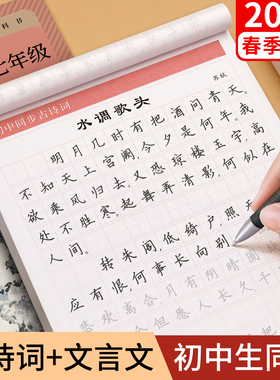 科书
七年级
20
春季
初中同步古诗词
苏轼
水调歌头
明月几时有把酒问青天。
不知天上宫阙,今夕是何年。我
欲乘风归去,又恐琼楼玉宇,高
处不胜寒。起舞弄清影,何似在
人间。
转朱阁,低绮户,照无
应有恨,何事长向别
悲欢离合,月有阴晴圆
人长久,千
诗词+文言文
初中生同